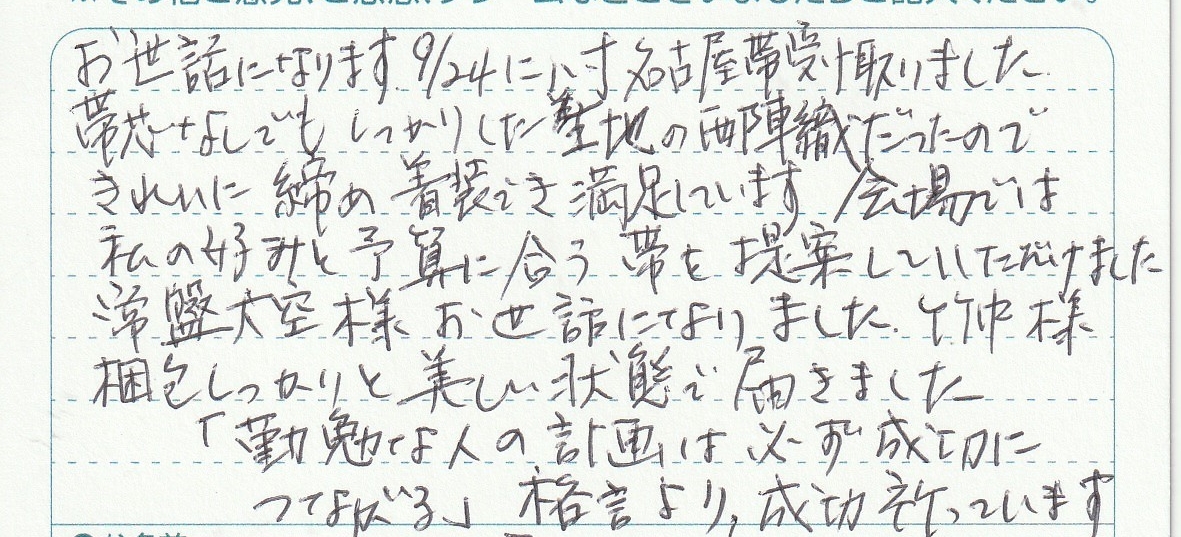 お世話になります.9/24に八寸名古屋帯受け取りました.
帯芯なしでも しっかりした生地の西陣織だったので
きれいに 締め 着装でき 満足しています 会場では
私の好みと予算に合う 帯を 提案していただけました
常盤大空様 お世話になりました. 竹仲様
梱包しっかりと 美しい状態で 届きました
「勤勉な人の計画は必ず成功に
つながる」 格言より, 成功祈っています